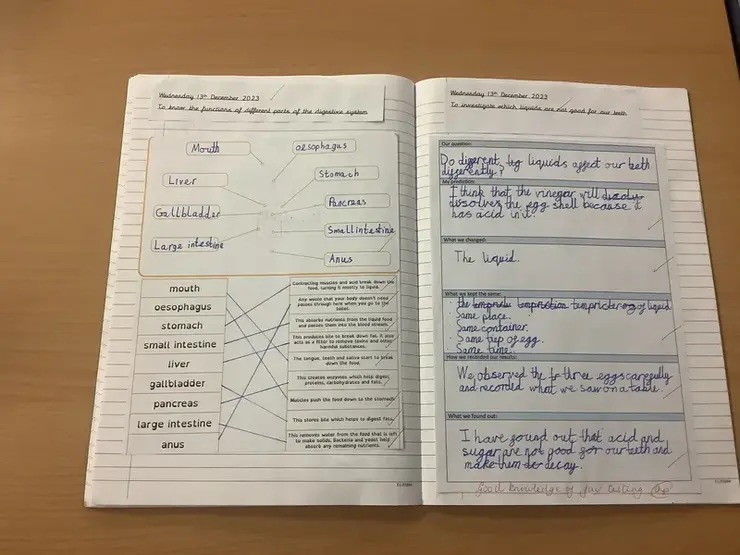 Wednesday 13th December 2023
To know the functions of different parts of the digestive system
Mouth
oesophagus
Liver
Stomach
Pancreas
Gallbladder
Small intestine
Large intestine
Anus
mouth
oesophagus
stomach
small intestine
liver
gallbladder
pancreas
large intestine
anus
Contracting muscles and acid break down the
food, turning it mostly to liquid.
Any waste that your body doesn't need
passes through here when you go to the
toilet.
This absorbs nutrients from the liquid food
and passes them into the blood stream.
This produces bile to break down fat. It also
acts as a filter to remove toxins and other
harmful substances.
The tongue, teeth and saliva start to break
down the food.
This creates enzymes which help digest
proteins, carbohydrates and fats.
Muscles push the food down to the stomach.
This stores bile which helps to digest fats.
This removes water from the food that is left
to make solids. Bacteria and yeast help
absorb any remaining nutrients.
Wednesday 13th December 2023
To investigate which liquids are not good for our teeth
Our question:
Do different liquids affect our teeth
differently?
My prediction:
I think that the vinegar will
dissolves the egg shell because it
has acid in it.
What we changed:
The liquid.
What we kept the same:
of liquid
Same place.
Same container.
Same of egg.
Same time.
How we recorded our results:
We observed the three eggs carefully
and recorded what we saw on a table.
What we found out:
I have found out that acid and
sugar are not good for our teeth and
make them decay.
Good knowledge of fair testing